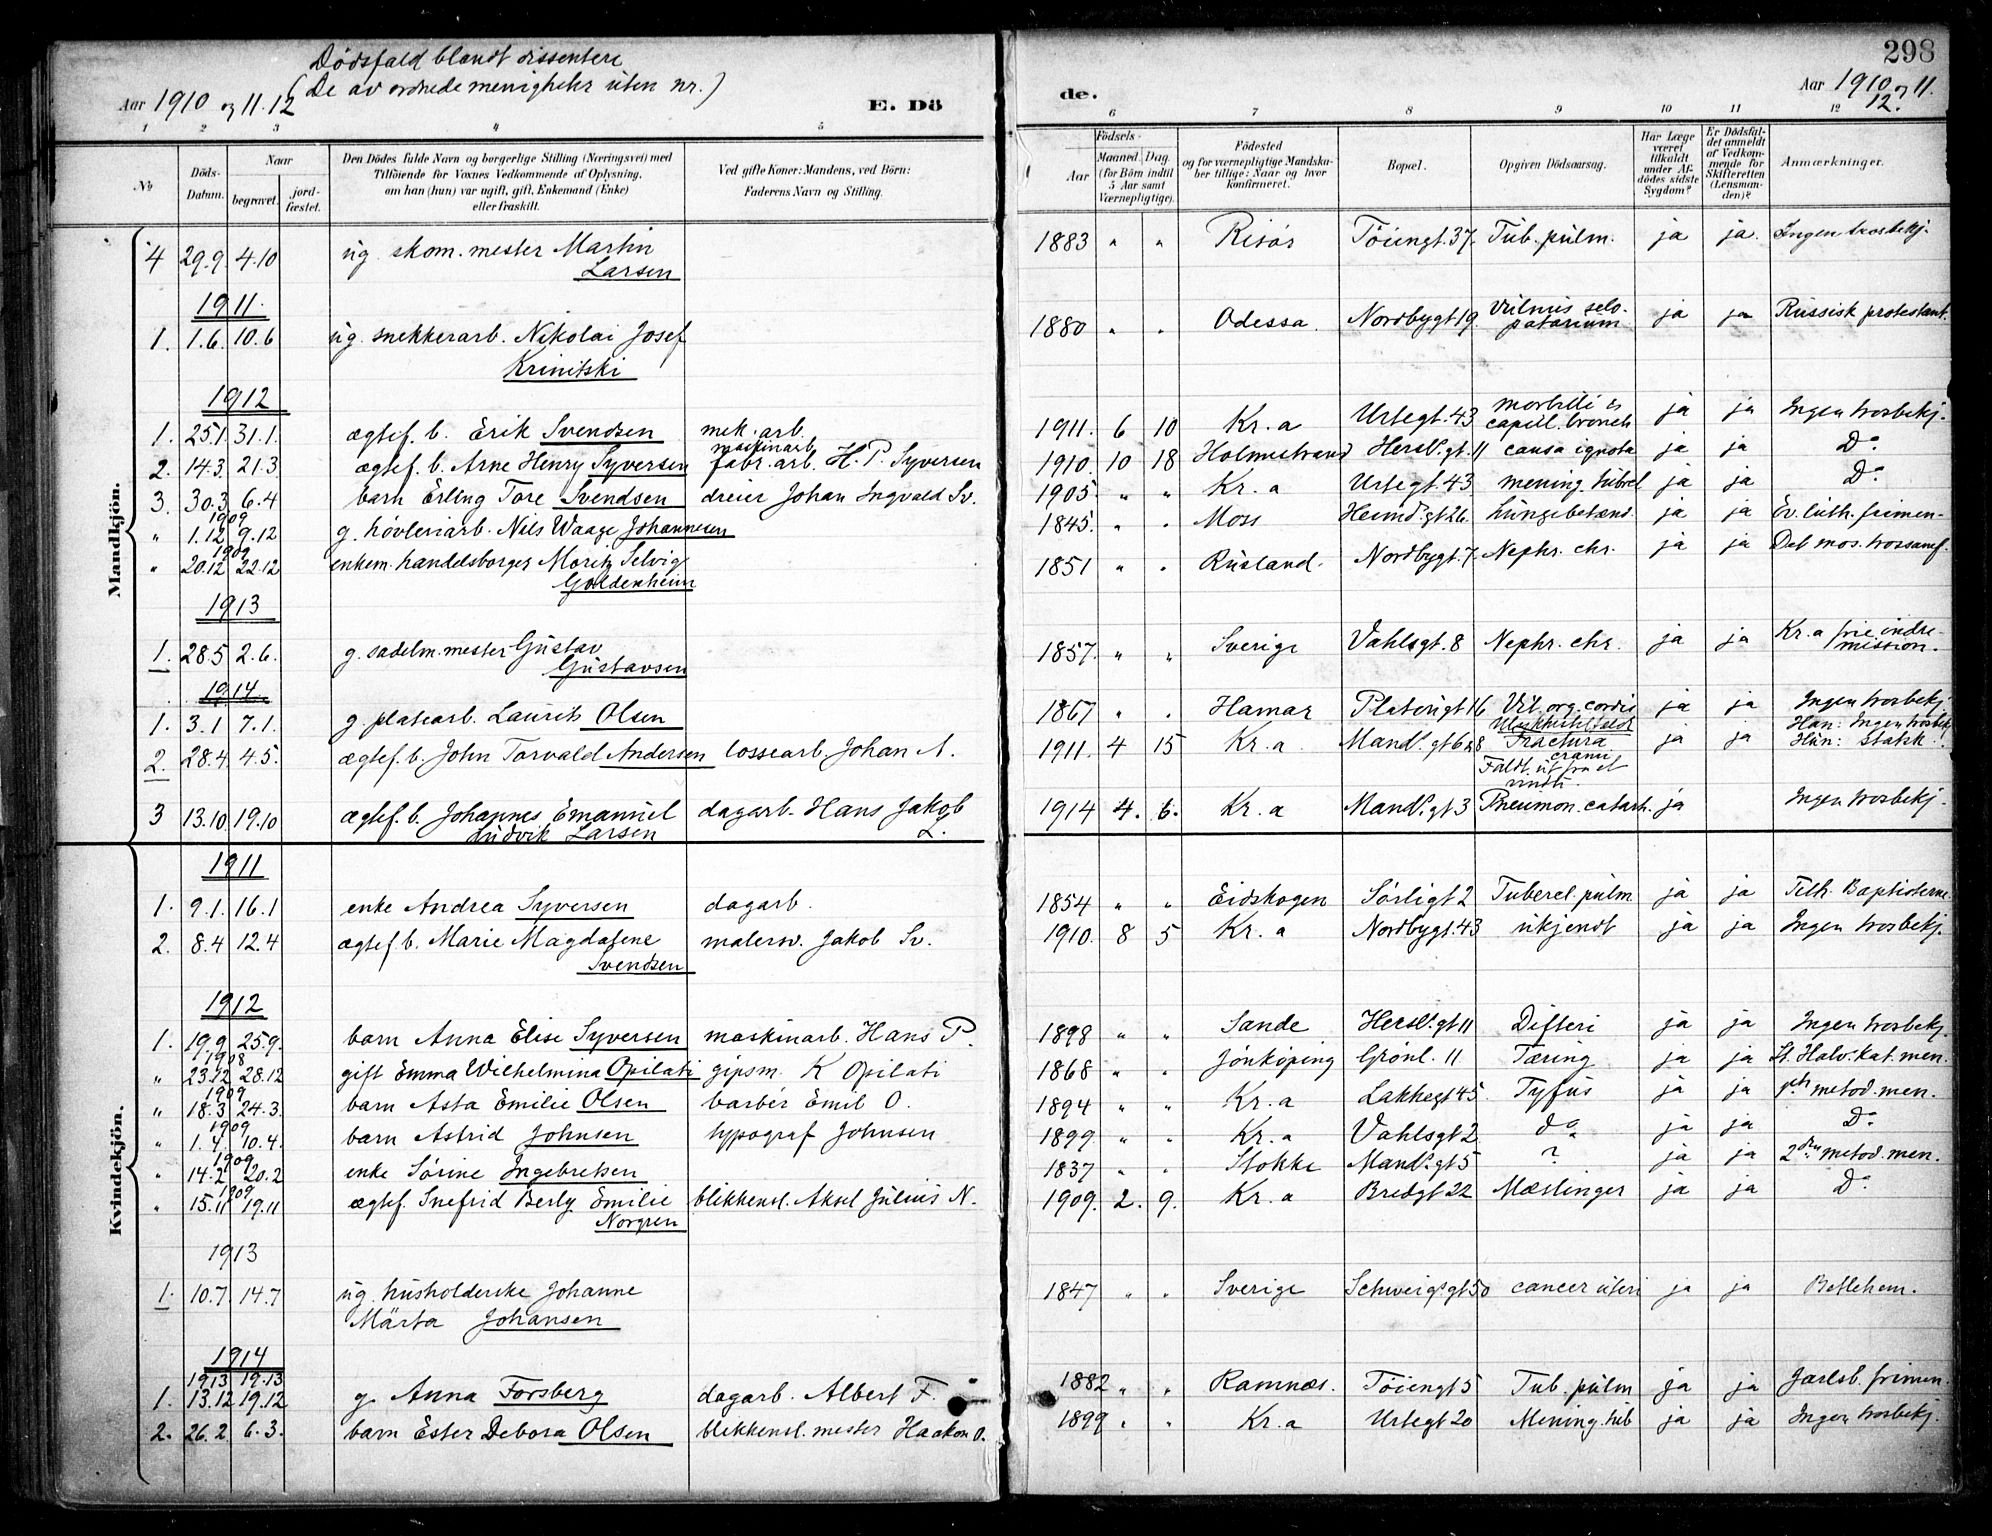 298
Dödsfald blandt dissentere
(De av ordnede menigheter uten nr.)
Aar 1910 og 11.12
E. Dö
de.
Aar 1910 og 11.
12.
1 2 3 4 5 6 7 8 9 10 11 12
No
Döds-Datum.
Naar
begravet.
jord-fæstet.
Den Dödes fulde Navn og borgerlige Stilling (Næringsvei) med
Tilföiende for Voxnes Vedkommende af Oplysning,
om han (hun) var ugift, gift, Enkemand (Enke)
eller fraskilt.
Ved gifte Koner: Mandens, ved Börn:
Faderens Navn og Stilling.
Födsels-
Aar
Maaned. Dag.
(for Börn indtil
5 Aar samt
Værnepligtige).
Födested
og for værnepligtige Mandska-
ber tillige: Naar og hvor
konfirmeret.
Bopæl.
Opgiven Dödsaarsag.
Har Læge
været
tilkaldt
under Af-
dödes sidste
Sygdom?
Er Dödsfal-
det anmeldt
af Vedkom-
mende for
Skifteretten
(Lensman-
den)?
Anmærkninger.
Mandkjön.
4 29.9. 4.10 ug. skom.mester Martin 1883 " " Risör Töiengt. 37. Tub. pulm. ja ja. Ingen trosbekj.
Larsen
1911.
1. 1.6. 10.6 ug. snekkerarb. Nikolai Josef 1880 " " Odessa. Nordbygt 19. Vulnus selo-patarium ja ja Russisk protestant.
Krinitski
1912
1. 25.1. 31.1. ægtef. b. Erik Svendsen mek. arb. 1911. 6 10 Kr.a Urtegt. 43 morbilli & capill. bronch ja ja Ingen trosbekj.
2. 14.3. 21.3 ægtef. b. Arne Henry Syversen maskinarb. fabr. arb. H. P. Syversen 1910. 10 18 Holmestrand Hersl. gt. 11 causa ignota ja ja Do
3. 30.3 6.4 barn Erling Tore Svendsen dreier Johan Ingvald Sv. 1905. " " Kr.a Urtegt. 43 mening. tubrel ja ja Do
" 1909 1.12 9.12 g. hövleriarb. Nils Waage Johannesen 1845. " " Moss Heimd. gt 26. Lungebetænd. ja ja Ev. luth. frimen-
" 1909 20.12 22.12 enkem. handelsborger Moritz Selvig 1851 " " Rusland. Nordbygt. 7. Nephr. chr. ja ja Det mos. trossamf.
Goldenheim
1913
1. 28.5 2.6. g. sadelm.mester Gustav 1857. " " Sverige Vahlsgt. 8 Nephr. chr. ja ja Kr.a frie indre-mission.
Gustavsen
1914.
1. 3.1 7.1. g. platearb. Laurits Olsen 1867 " " Hamar Platougt 16 Vit. org. cordis ja ja Ingen trosbekj
2. 28.4. 4.5. ægtef. b. John Torvald Andersen lossearb. Johan A. 1911. 4 15 Kr.a Mandl. gt 6 Ulykkestilfælde Fractura cranii Faldt ut fra et vindu. ja ja Han: Ingen trosbek. Hun: Statsk.!
3 13.10 19.10 ægtef. b. Johannes Emanuel dagarb. Hans Jakob L. 1914 4. 6. Kr.a Mandl. gt 3 Pneumon. catarh. ja Ingen trosbekj.
Ludvik Larsen
Kvindekjön.
1911
1. 9.1. 16.1 enke Andrea Syversen dagarb. 1854 " " Eidskogen Sörligt 2 Tubercl. pulm ja ja Tilh. Baptisterne.
2. 8.4 12.4 ægtef. b. Marie Magdalene malersv. Jakob Sv. 1910. 8 5 Kr.a Nordbygt. 43 ukjendt ja ja Ingen trosbekj.
Svendsen
1912
1. 19.9. 25.9. barn Anna Elise Syversen maskinarb. Hans P. 1898 " " Sande Hersl. gt 11 Difteri ja ja Ingen trosbekj.
" 1908 23.12 28.12 gift Emma Wilhelmina Opilati gipsm. K Opilati 1868 " " Jönköping Grönl. 11 Tæring ja ja St. Halv. kat. men.
" 1909 18.3 24.3. barn Asta Emilie Olsen barber Emil O. 1894 " " Kr.a Lakkegt 45 Tyfus ja ja 1ste metod. men.
" 1909 1.4 10.4. barn Astrid Johnsen typograf Johnsen 1899 " " Kr.a Vahlsgt 2 do ja ja Do
" 1909 14.2 20.2 enke Sörine Ingebretsen 1837 " " Stokke Mandl. gt 5 ? ja ja 2den metod. men.
" 1909 15.11 19.11 ægtef. Snefrid Berly Emilie blikkensl. Aksel Julius N. 1909. 2. 9. Kr.a Bredgt 22 Mæslinger ja ja Do
Norgren
1913
1. 10.7. 14.7 ug. husholderske Johanne 1847 " " Sverige Schweigsgt 50 cancer uteri ja ja Betlehem.
Märta Johansen
1914
1. 1913 13.12 19.13 19.12 g. Anna Forsberg dagarb. Albert F. 1882 " " Ramnæs. Töiengt 5 Tub. pulm ja ja Jarlsb. frimen.
2. 26.2. 6.3. barn Ester Debora Olsen blikkensl. mester Haakon O. 1899 " " Kr.a Urtegt 20 Mening. tub ja ja Ingen trosbekj.